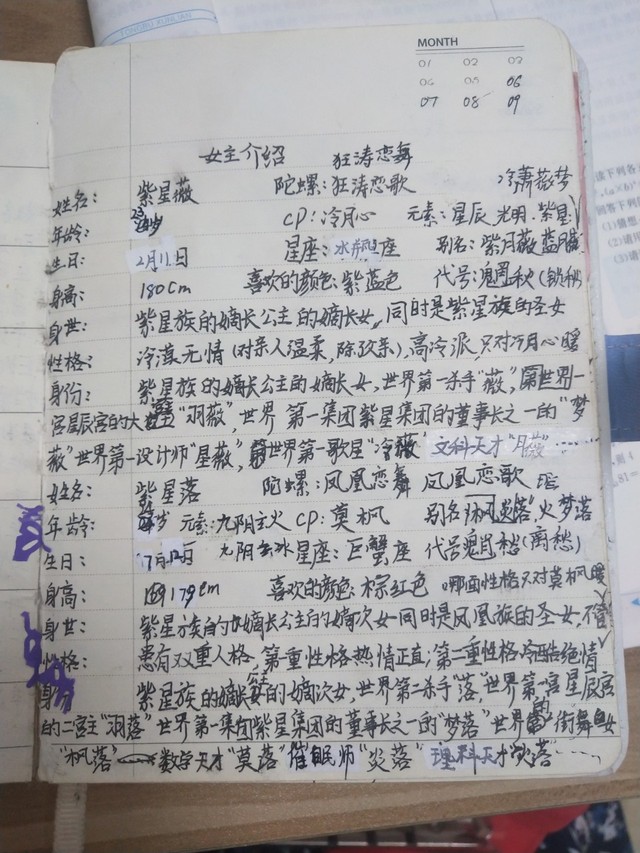 TONGBU XUNLIAN
MONTH
01 02 03
06 05 06
07 08 09
女主介绍 狂涛恋舞
姓名: 紫星薇 陀螺:狂涛恋歌 冷萧薇梦
年龄: 岁 CP:冷月心 元素:星辰.光明.紫星
生日: 2月11日 星座:水瓶座 别名:紫月薇 蓝月
身高: 180cm 喜欢的颜色:紫蓝色 代号:
身世: 紫星族的嫡长公主的嫡长女,同时是紫星族的圣女
性格: 冷漠无情(对亲人温柔,除玖亲),高冷派,只对冷月心暖
身份: 紫星族的嫡长公主的嫡长女,世界第一杀手"薇",世界一
宫星辰宫的大宫主"羽薇",世界第一集团紫星集团的董事长之一的"梦
薇"世界第一设计师"星薇",世界第一歌星"冷薇"文科天才"月薇"……
姓名: 紫星落 陀螺:凤凰恋舞 凤凰恋歌
年龄: 岁 元素:九阳主火 CP:莫枫 别名:枫炎落 火梦落
生日: 7月12日 九阴玄冰 星座:巨蟹座 代号 (离愁)
身高: 179cm 喜欢的颜色:棕红色 哪面性格只对莫枫暖
身世: 紫星族的嫡长公主的嫡次女同时是凤凰族的圣女,不管
性格: 患有双重人格,第一重性格热情正直;第二重性格冷酷绝情
身份 紫星族的嫡长公主的嫡次女,世界第二杀手"落",世界第一宫星辰宫
的二宫主"羽落"世界第一集团紫星集团的董事长之一的"梦落"世界的街舞女
"枫落"——数学天才"莫落"催眠师"炎落"理科天才"火落"……